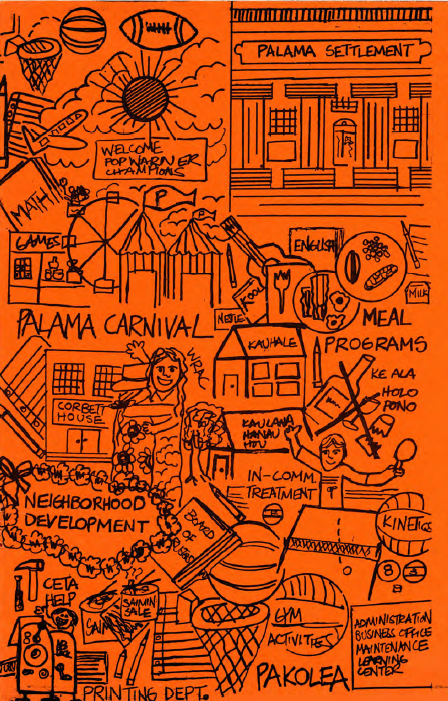 PALAMA SETTLEMENT
WELCOME
POP WARNER
CHAMPIONS
MATH
P
GAMES
ENGLISH
KOOL
MILK
NESTLE
PALAMA CARNIVAL
MEAL
PROGRAMS
KAUHALE
WRAC
KE ALA
HOLO
PONO
CORBETT
HOUSE
KAULANA
HANAU
HOU
IN-COMM.
TREATMENT
P
NEIGHBORHOOD
DEVELOPMENT
BOARD
OF
KINETICS
8
3
CETA
HELP
SAIMIN
SALE
SAIMIN
GYM
ACTIVITIES
ADMINISTRATION
BUSINESS OFFICE
MAINTENANCE
LEARNING
CENTER
PAKOLEA
PRINTING DEPT.